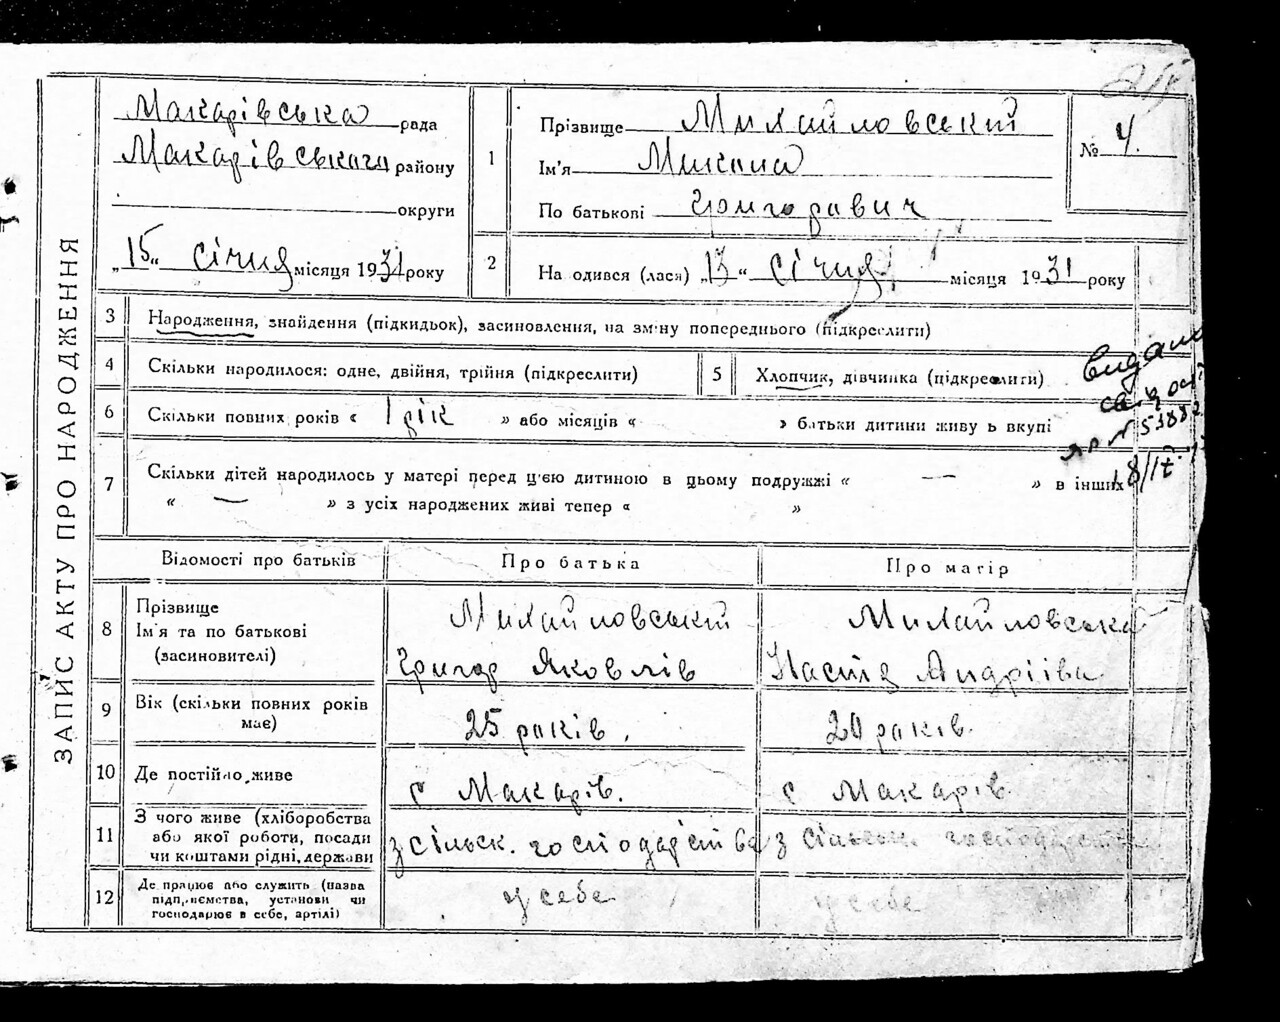 ЗАПИС АКТУ ПРО НАРОДЖЕННЯ
Макарівська рада
Макарівського району
округи
„15“ січня місяця 1931 року
1
Прізвище Михайловський
Ім'я Микола
По батькові Григоравич
№ 4.
2
На одився (лася) „13“ січня місяця 1931 року
3 Народження, знайдення (підкидьок), засиновлення, на зміну попереднього (підкреслити)
4 Скільки народилося: одне, двійня, трійня (підкреслити)
5 Хлопчик, дівчинка (підкреслити)
6 Скільки повних років « 1 рік » або місяців « » батьки дитини живу ь вкупі
7 Скільки дітей народилось у матері перед ц'єю дитиною в цьому подружжі « — » в інших
« — » з усіх народжених живі тепер « »
видано
№ 53882
18/IX
Відомості про батьків
Про батька
Про матір
8 Прізвище
Ім'я та по батькові
(засиновителі)
Михайловський
Григор Яковлів
Михайловська
Настя Андріїва
9 Вік (скільки повних років має)
25 раків.
20 раків.
10 Де постійно живе
с Макарів.
с Макарів.
11 З чого живе (хліборобства
або якої роботи, посади
чи коштами рідні, держави
з сільск. господарства
з сільськ. господарства
12 Де працює або служить (назва
підприємства, установи чи
господарює в себе, артілі)
у себе
у себе